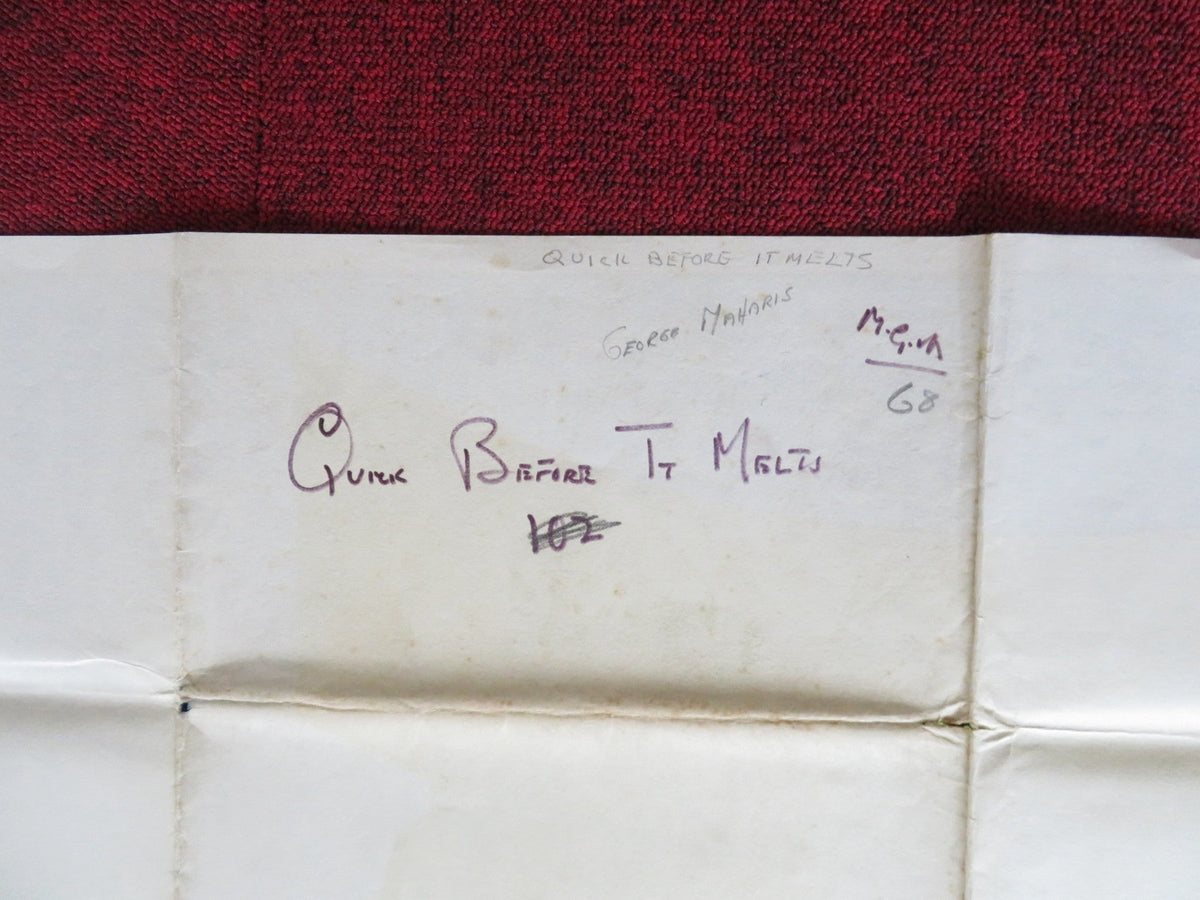 QUICK BEFORE IT MELTS
GEORGE MAHARIS
M.G.M
68
QUICK BEFORE IT MELTS
102